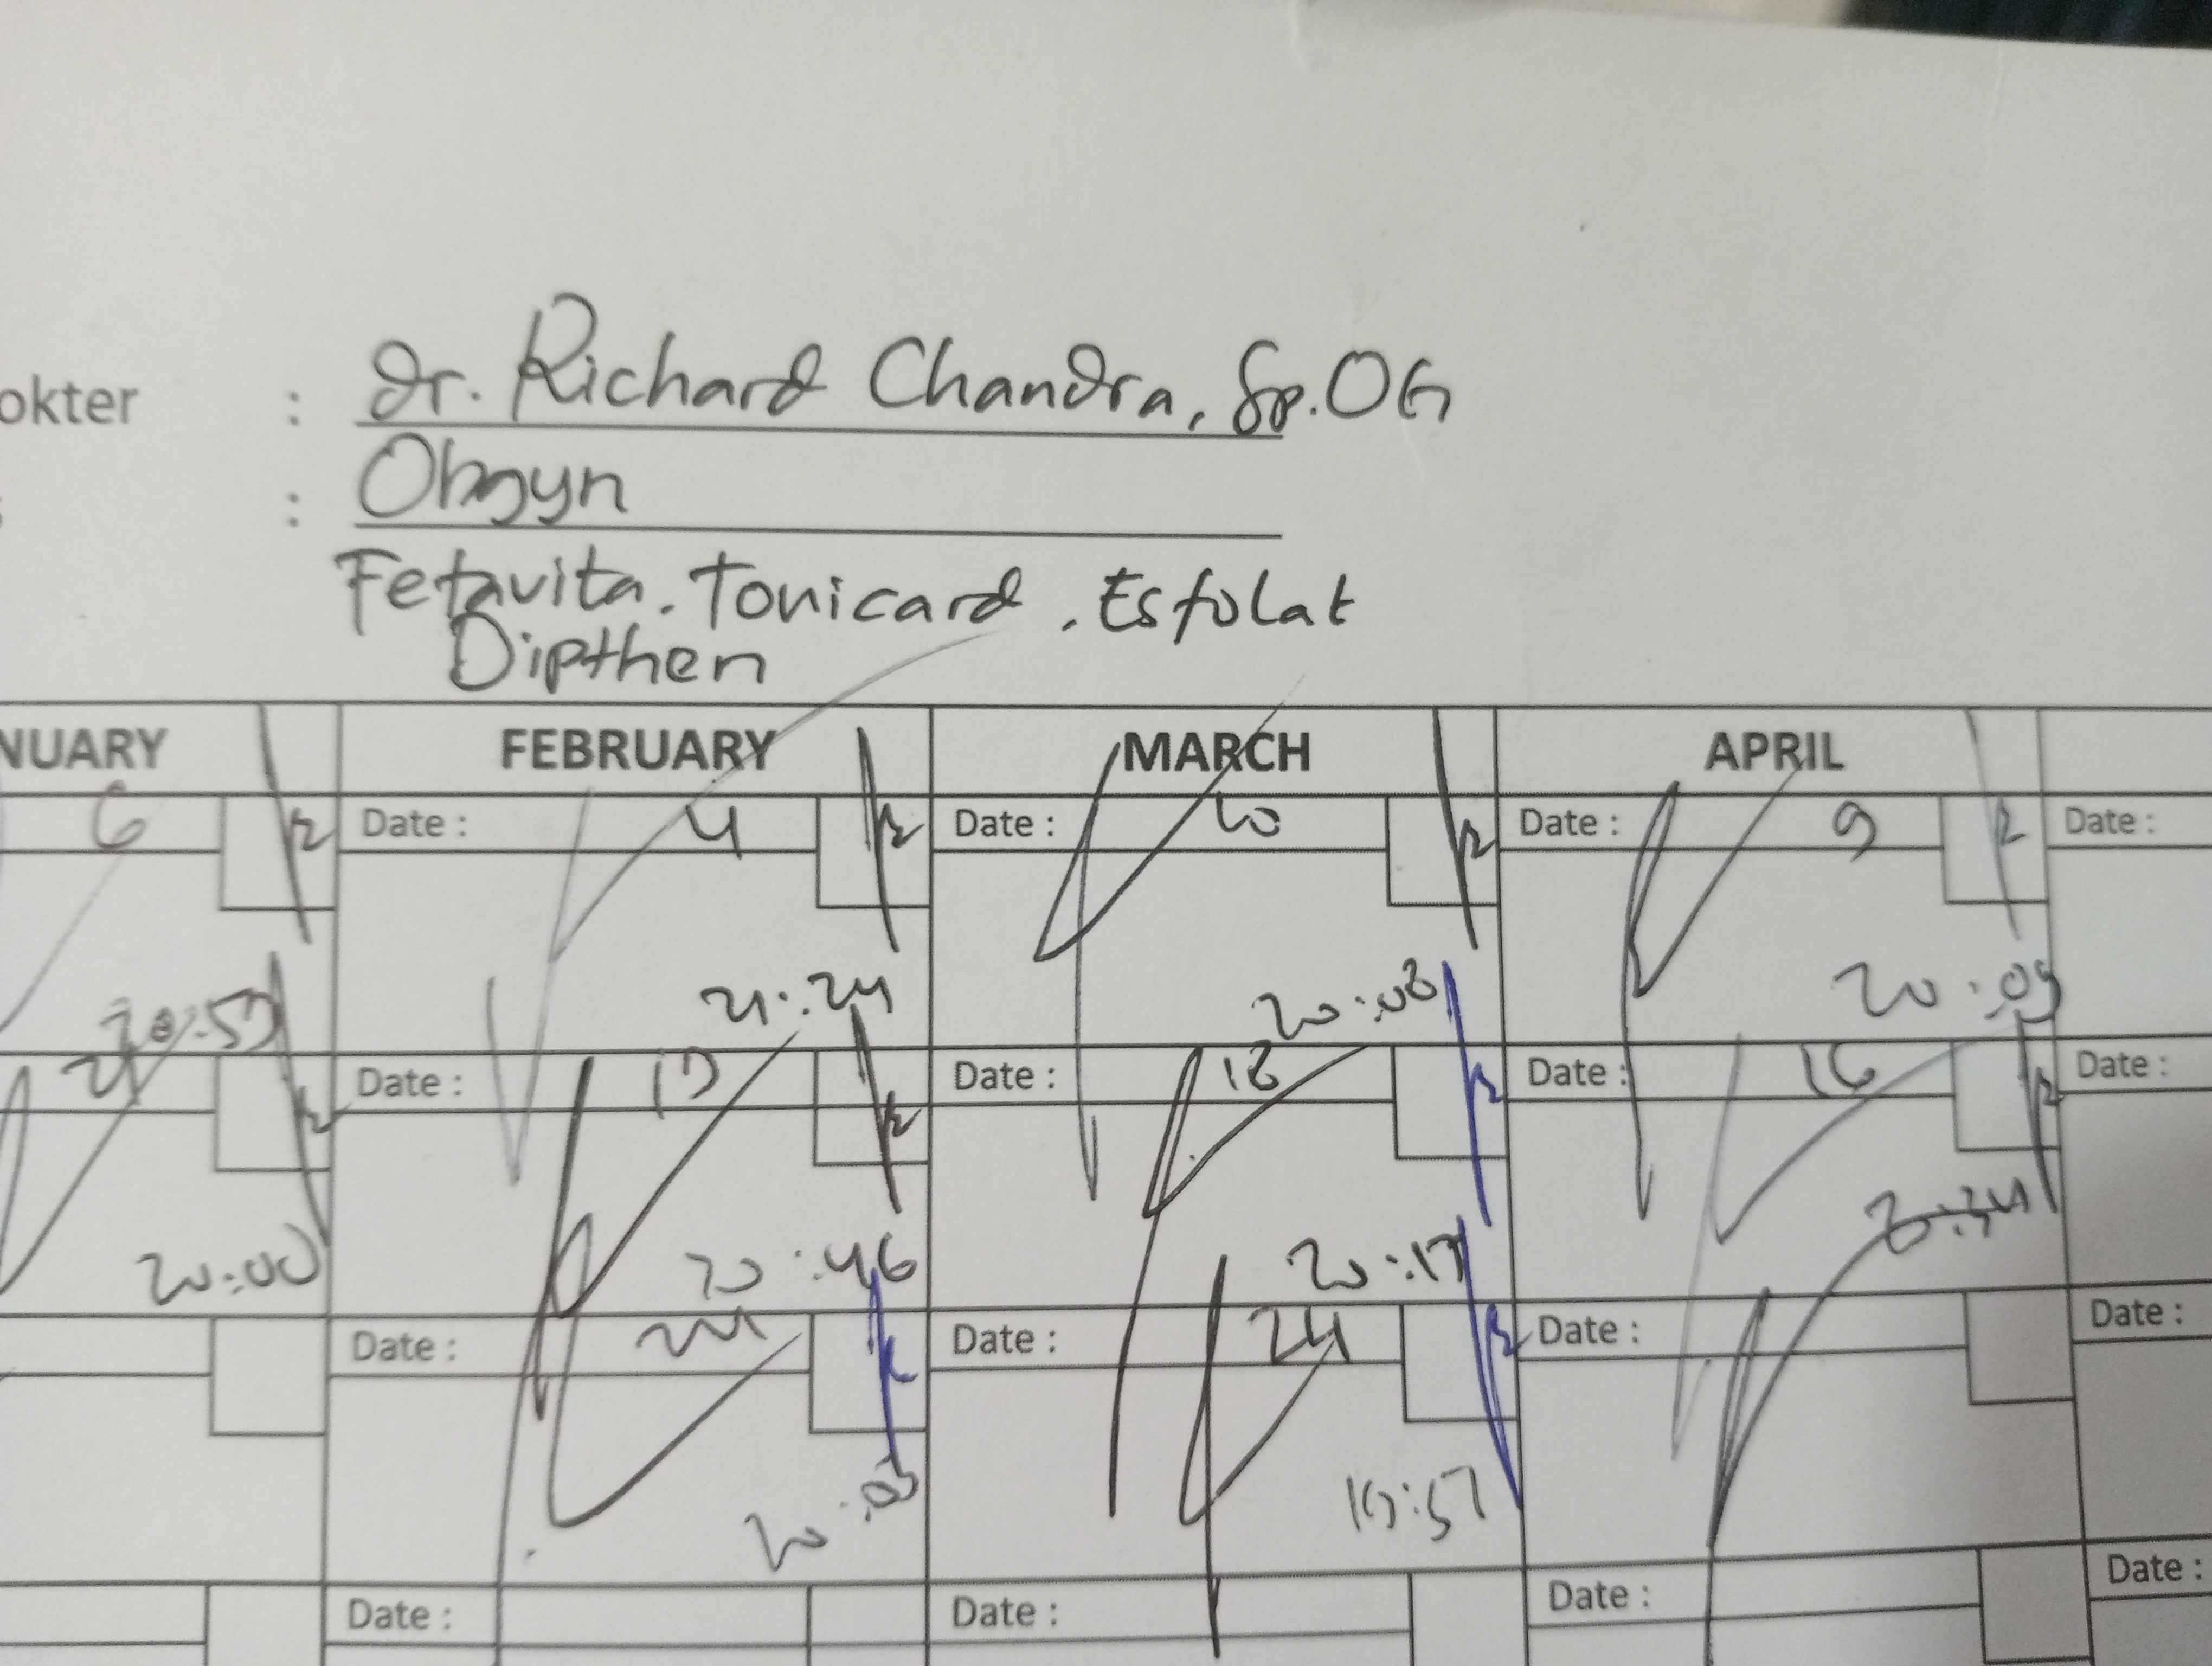 okter : dr. Richard Chandra, Sp.OG
: Obgyn
Fetavita. Tonicard. Esfolat
Dipthen
NUARY FEBRUARY MARCH APRIL
6 Date : 4 Date : 10 Date : 9 Date :
21:24 20:08 20:09
21 Date : 17 Date : 18 Date : 16 Date :
20:00 20:46 20:17
Date : 24 Date : 24 Date : Date :
20:05 19:57
Date : Date : Date : Date :